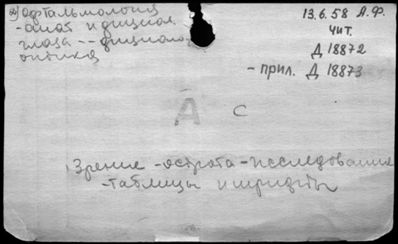 офтальмология
-анат и физиол.
глаза -- физиолог
оптика
13.6.58 А.Ф.
Чит.
Д 18872
- прил. Д 18873
А С
Зрение -острота-исследование
-таблицы и шрифты